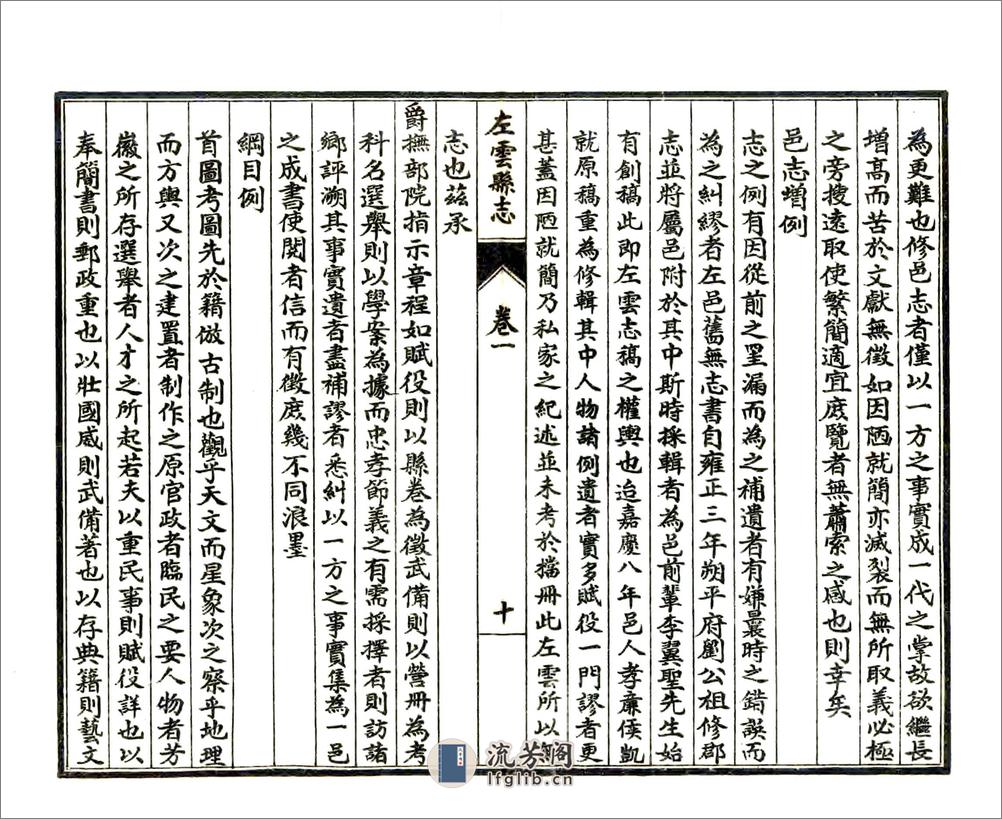 為更難也修邑志者僅以一方之事實成一代之掌故欲繼長
增高而苦於文獻無徵如因陋就簡亦滅裂而無所取義必極
之旁搜遠取使繁簡適宜庶覽者無蕭索之感也則幸矣
邑志增例
志之例有因從前之罣漏而為之補遺者有嫌曩時之錯誤而
為之糾繆者左邑舊無志書自雍正三年朔平府劉公祖修郡
志並將屬邑附於其中斯時採輯者為邑前輩李翼聖先生始
有創稿此即左雲志稿之權輿也迨嘉慶八年邑人孝廉侯凱
就原稿重為修輯其中人物諸例遺者實多賦役一門謬者更
甚蓋因陋就簡乃私家之紀述並未考於擋冊此左雲所以無
左雲縣志
卷一
十
志也茲承
爵撫部院指示章程如賦役則以縣卷為徵武備則以營冊為考
科名選舉則以學案為據而忠孝節義之有需採擇者則訪諸
鄉評溯其事實遺者盡補謬者悉糾以一方之事實集為一邑
之成書使閱者信而有徵庶幾不同浪墨
綱目例
首圖考圖先於籍倣古制也觀乎天文而星象次之察乎地理
而方輿又次之建置者制作之原官政者臨民之要人物者芳
徽之所存選舉者人才之所起若夫以重民事則賦役詳也以
奉簡書則郵政重也以壯國威則武備著也以存典籍則藝文
流芳閣
lfglib.cn